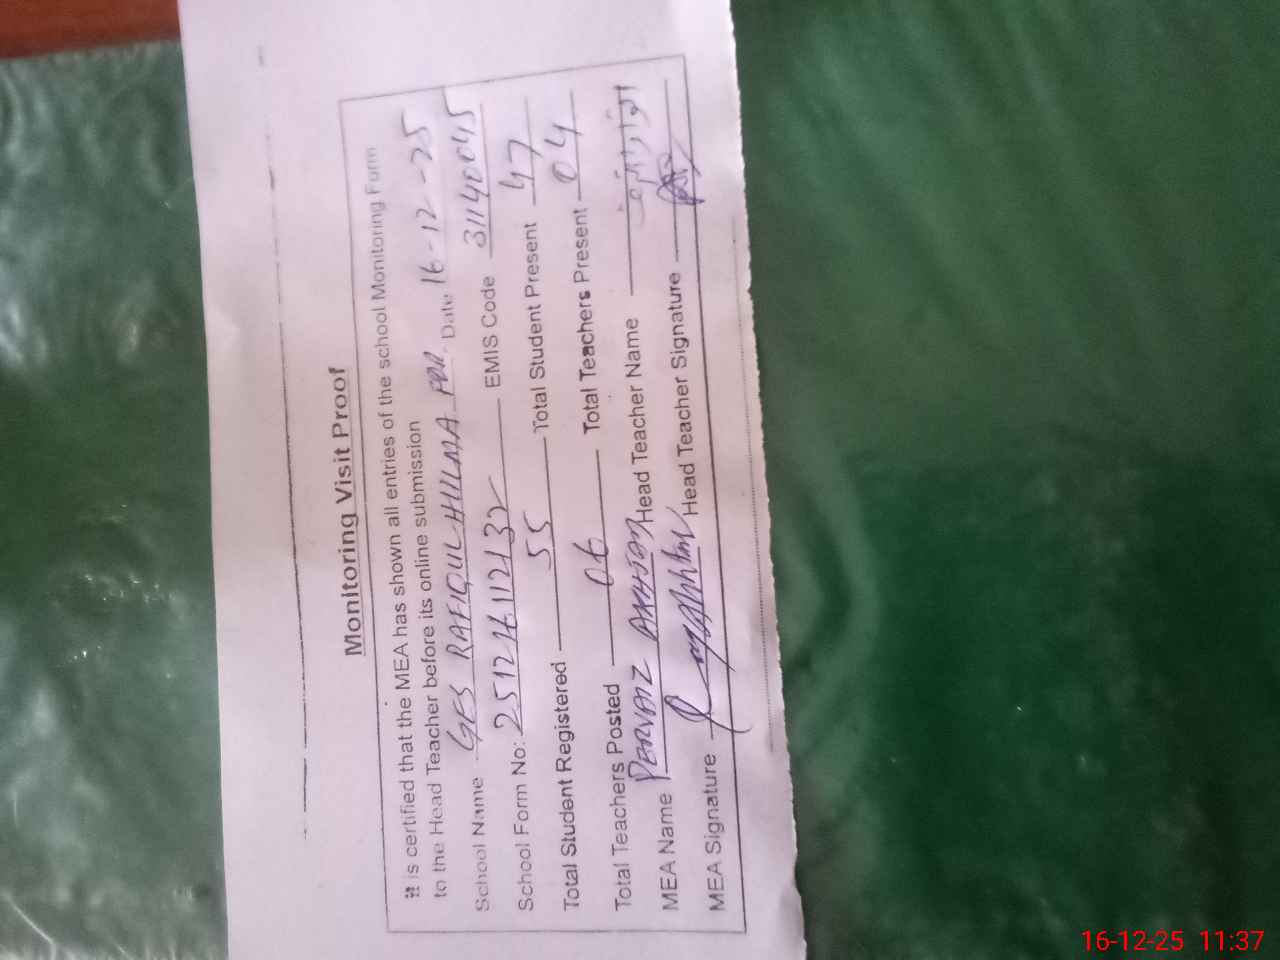 Monitoring Visit Proof
It is certified that the MEA has shown all entries of the school Monitoring Form
to the Head Teacher before its online submission
School Name GES RAFIQUL HULMA Date 16-12-25
School Form No: 251216112132 EMIS Code 31140045
Total Student Registered 55 Total Student Present 47
Total Teachers Posted 06 Total Teachers Present 04
MEA Name PERVAIZ Head Teacher Name
MEA Signature Head Teacher Signature
16-12-25 11:37